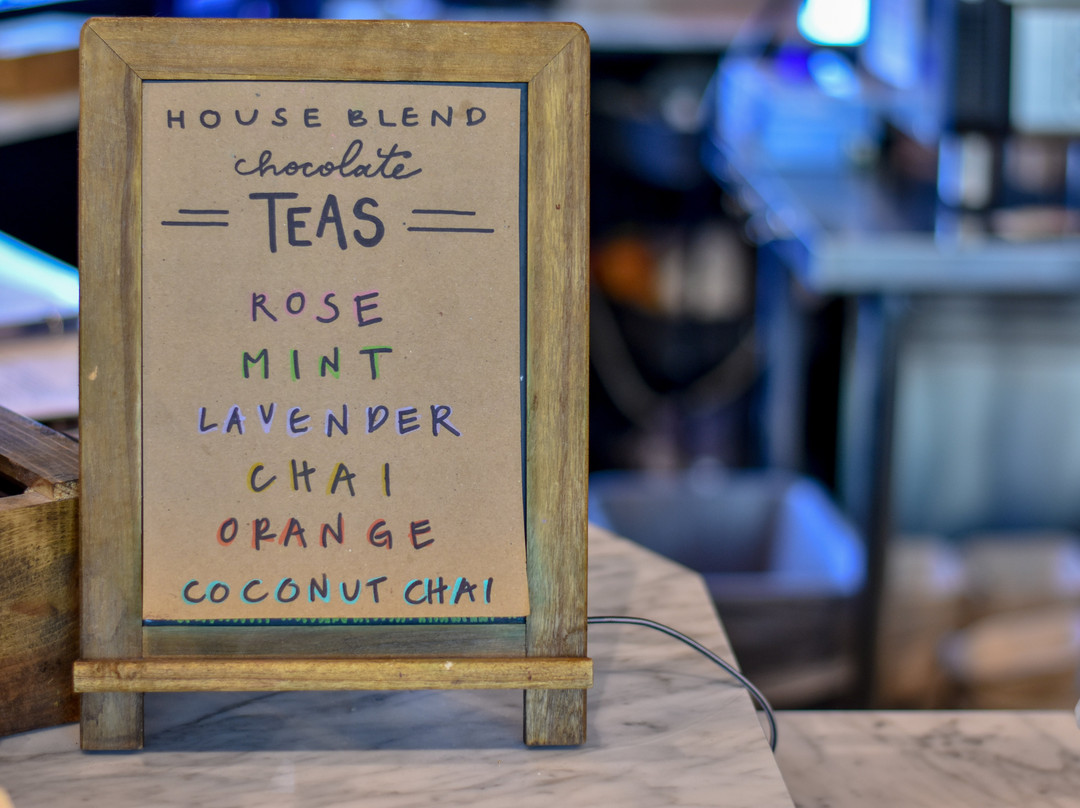 HOUSE BLEND
chocolate
TEAS
ROSE
MINT
LAVENDER
CHAI
ORANGE
COCONUT CHAI